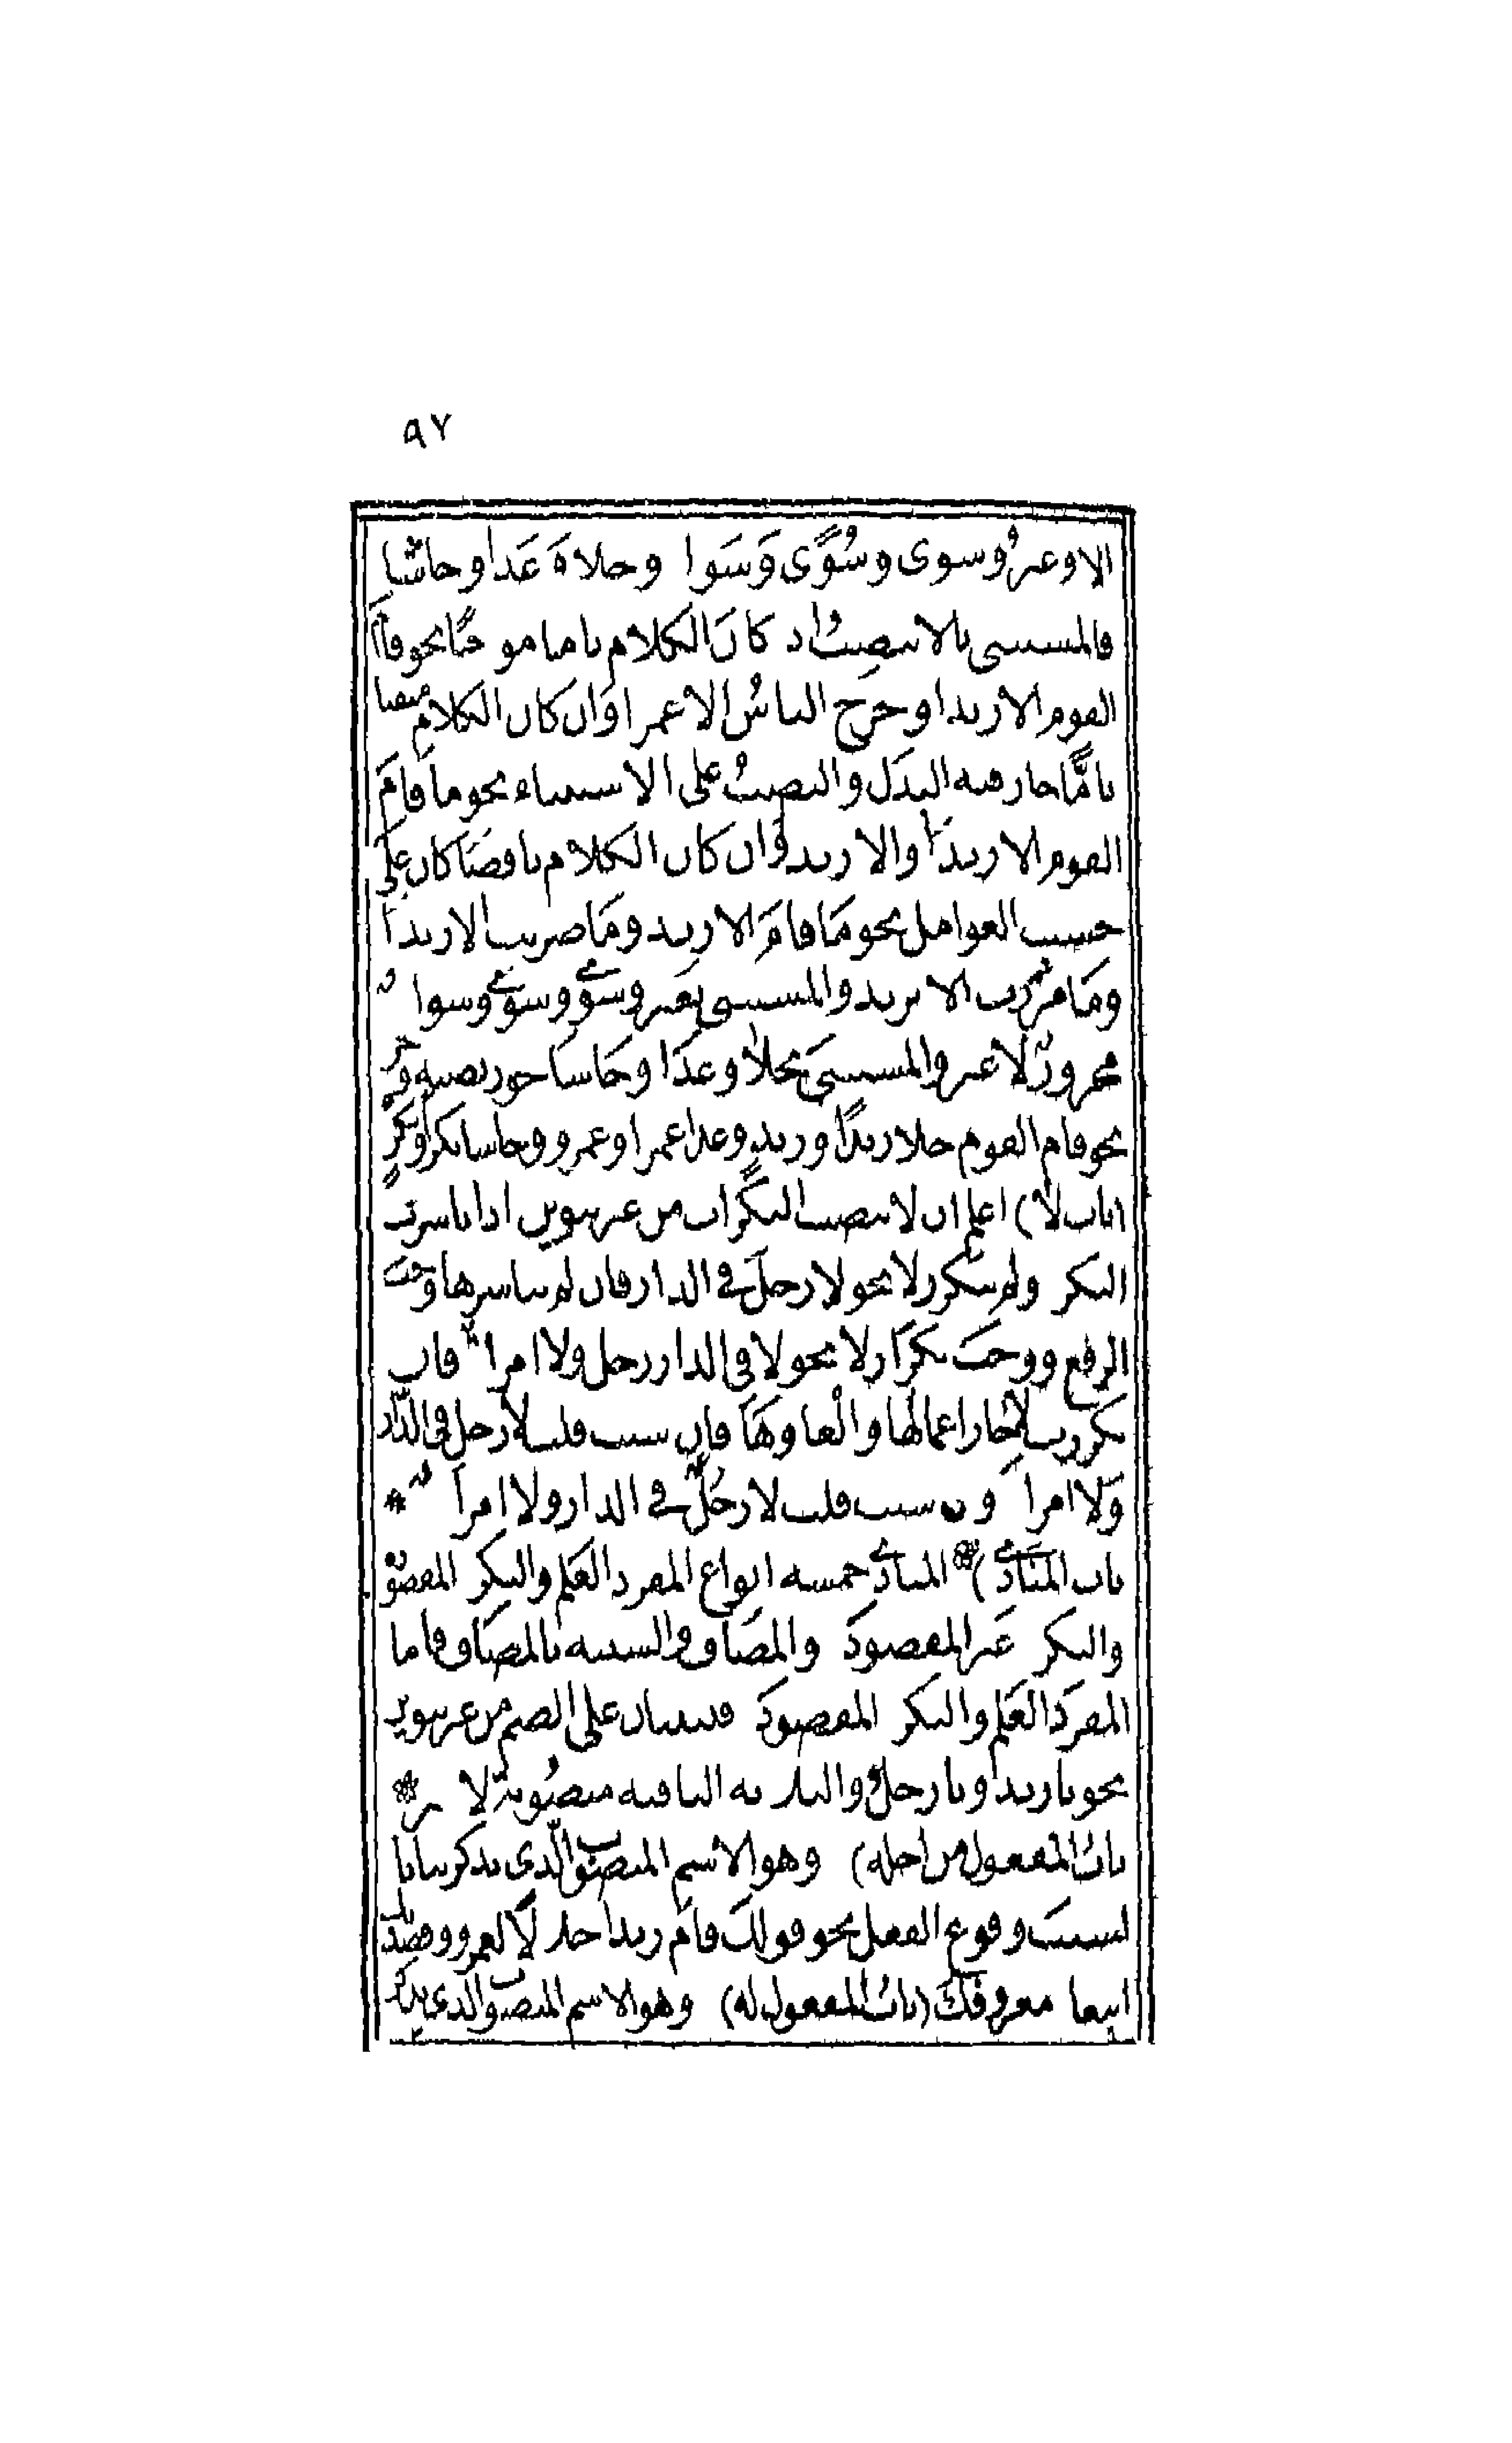 ٩٧
الا وغيرُ وسوى وسُوًى وَسَوا وخلا وَعَدا وحاشا
فالمستثنى بالا ينصبُ اذ كانَ الكلام تاما موجبًا نحو قامَ
القوم الا زيدا وخرج الناسُ الا عمرا وان كان الكلام منفيا
تامًّا جاز فيه البدَل والنصبُ على الاستثناء نحو ما قامَ
القوم الا زيدًا والا زيد وان كان الكلام ناقصًا كان على
حسب العوامل نحو مَا قامَ الا زيد ومَا ضربت الا زيدا
ومَا مررت الا بزيد والمستثنى بغير وسوى وسوى وسوا
مجرورٌ لا غير والمستثنى بخلا وعدَا وحَاشا يجوز نصبه وجره
نحو قام القوم خلا زيدًا وزيدٍ وعدا عمرا وعمرو وحاشا بكرا وبكرٍ
(باب لا) اعلم ان لا تنصب النكرات من غير تنوين اذا باشرت
النكرة ولم تتكرر لا نحو لا رجلَ في الدار فان لم تباشرها وجب
الرفع ووجبَ تكرَار لا نحو لا في الدار رجل ولا امراة فان
تكررت لا جاز اعمالها والْغاوهَا فان شيت قلت لا رجل فى الدَّار
وَلا امراة وان شيت قلت لا رجُلٌ في الدار ولا امراة *
باب المنَادى) * المنادى خمسه انواع المفرد العَلم والنكرة المقصوده
والنكرة غَير المقصودة والمضَاف والشبيه بالمضَاف فاما
المفرَد العَلم والنكرة المقصودة فيبنيان على الضم من غير تنوين
نحو يا زيد ويا رجلُ والثلاثه الباقيه منصُوبة لا غير *
بابُ المفعول من اجله) وهو الاسم المنصوب الَّذى يذكر بيانا
لسببَ وقوع الفعل نحو قولك قام زيد اجلالًا لعمرو وقصدتك
ابتغا معروفكَ (بابُ المفعول له) وهو الاسم المنصوب الذى يذكر